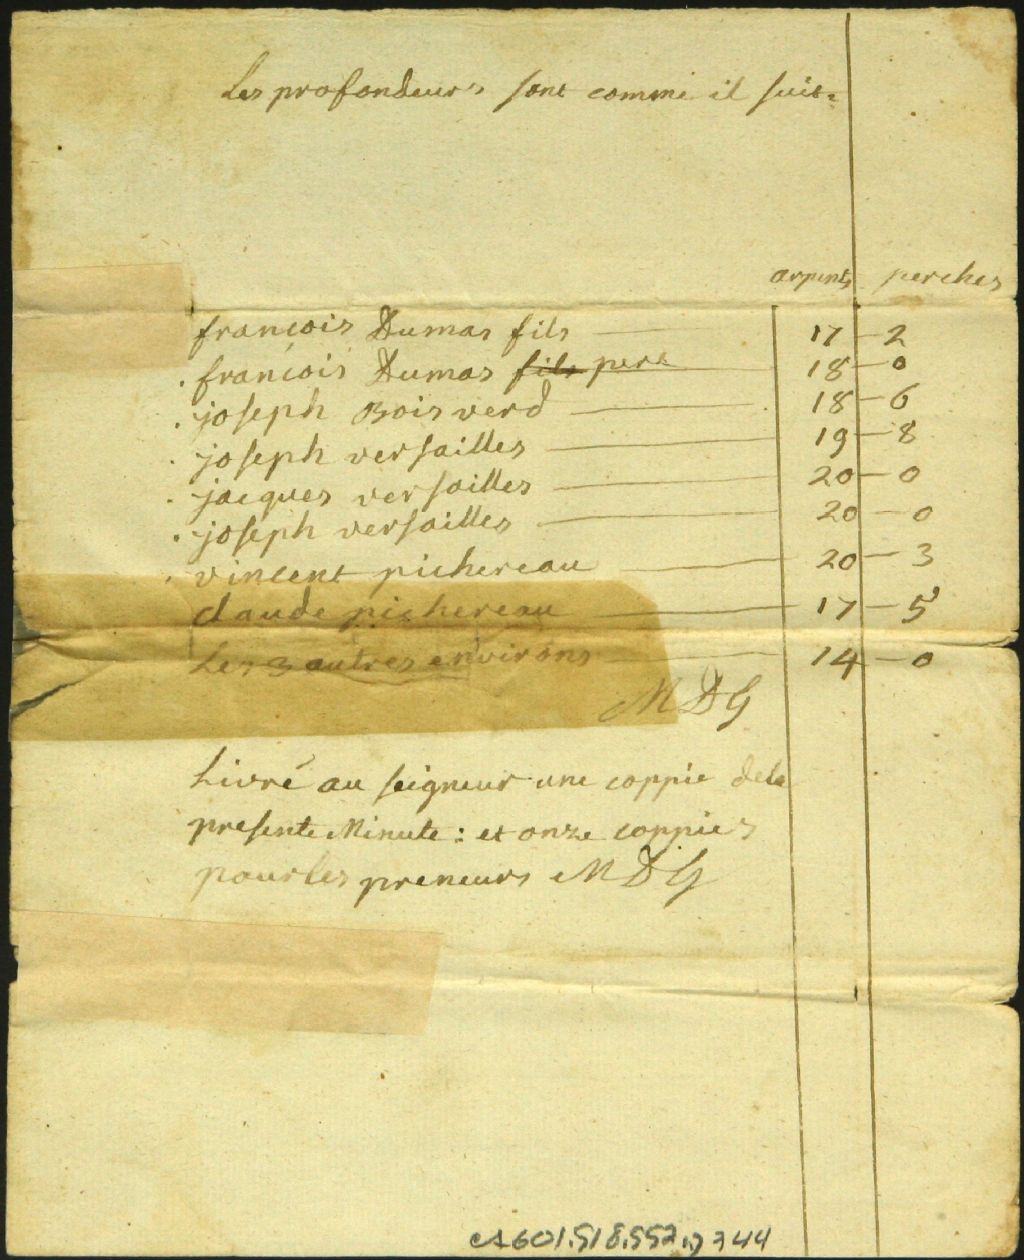 Les profondeurs sont comme il suit.
arpents perches
françois Dumas fils 17 - 2
françois Dumas fils pere 18 - 0
joseph Boisverd 18 - 6
joseph versailles 19 - 8
jacques versailles 20 - 0
joseph versailles 20 - 0
vincent pichereau 20 - 3
claude pichereau 17 - 5
Les 3 autres environs 14 - 0
MDG
Livré au seigneur une coppie dela
presente Minute : et onze coppies
pour les preneurs MDG